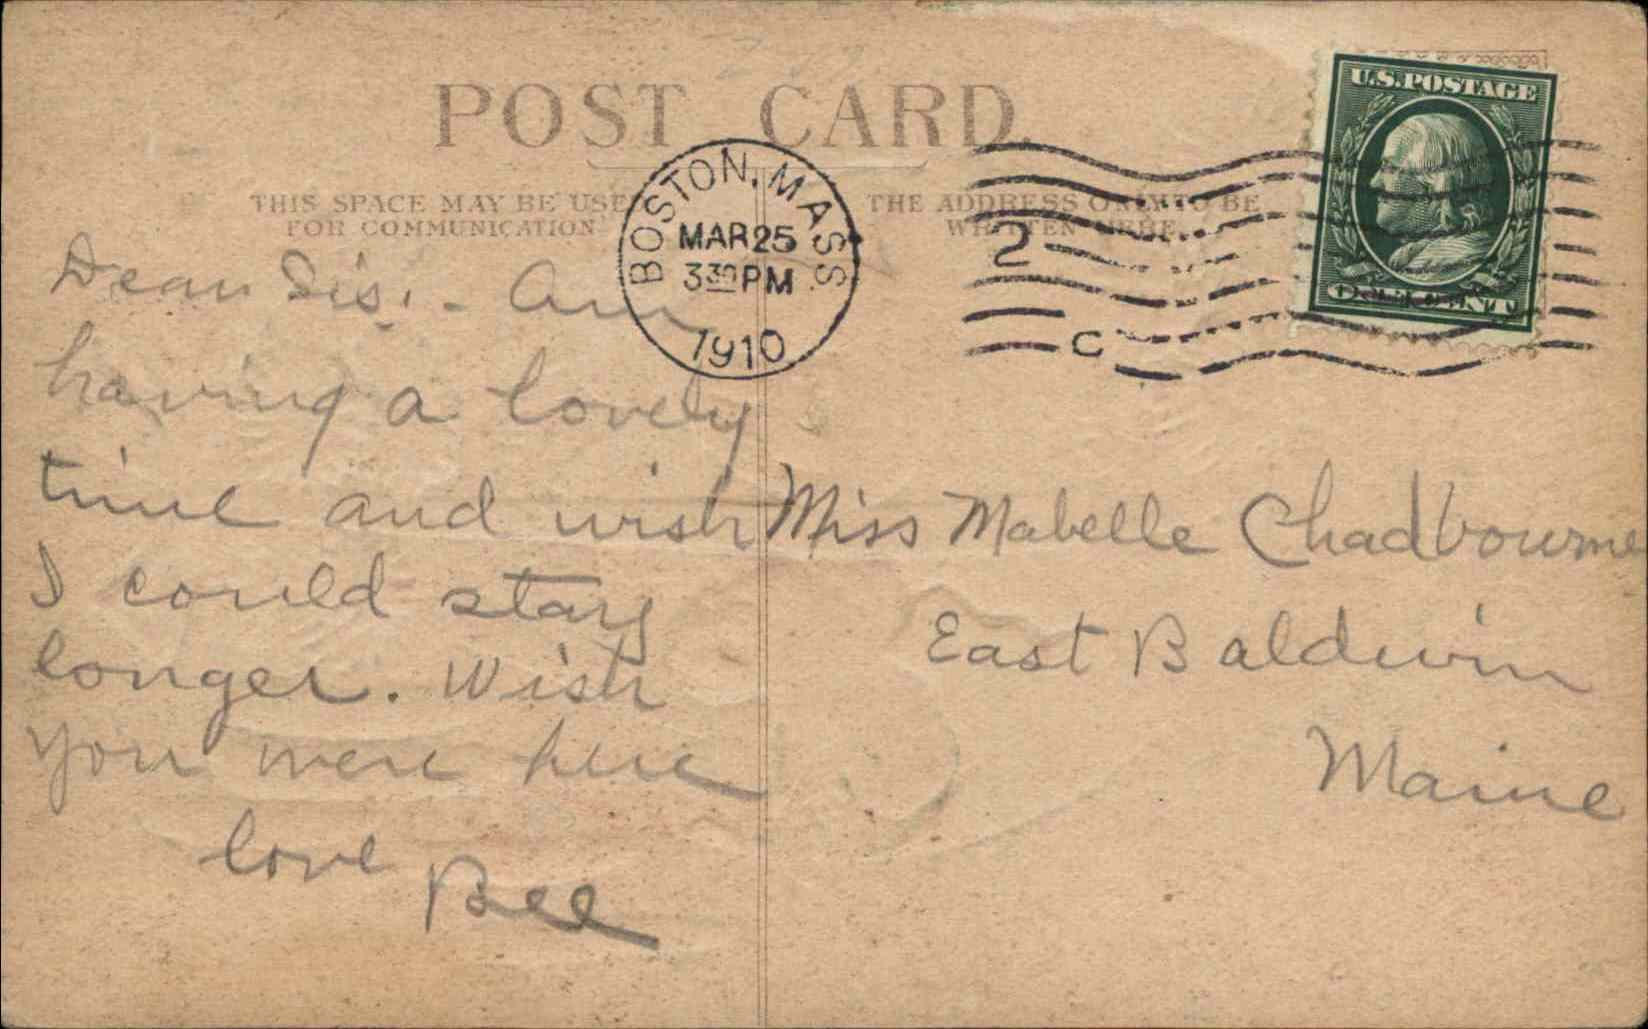 POST CARD.
THIS SPACE MAY BE USED
FOR COMMUNICATION
THE ADDRESS ONLY TO BE
WRITTEN HERE.
BOSTON, MASS.
MAR 25
3 30 PM
1910
2
C
U.S. POSTAGE
ONE CENT
Dear Sis, - Am
having a lovely
time and wish
I could stay
longer. Wish
you were here
love Bee
Miss Mabelle Chadbourne
East Baldwin
Maine